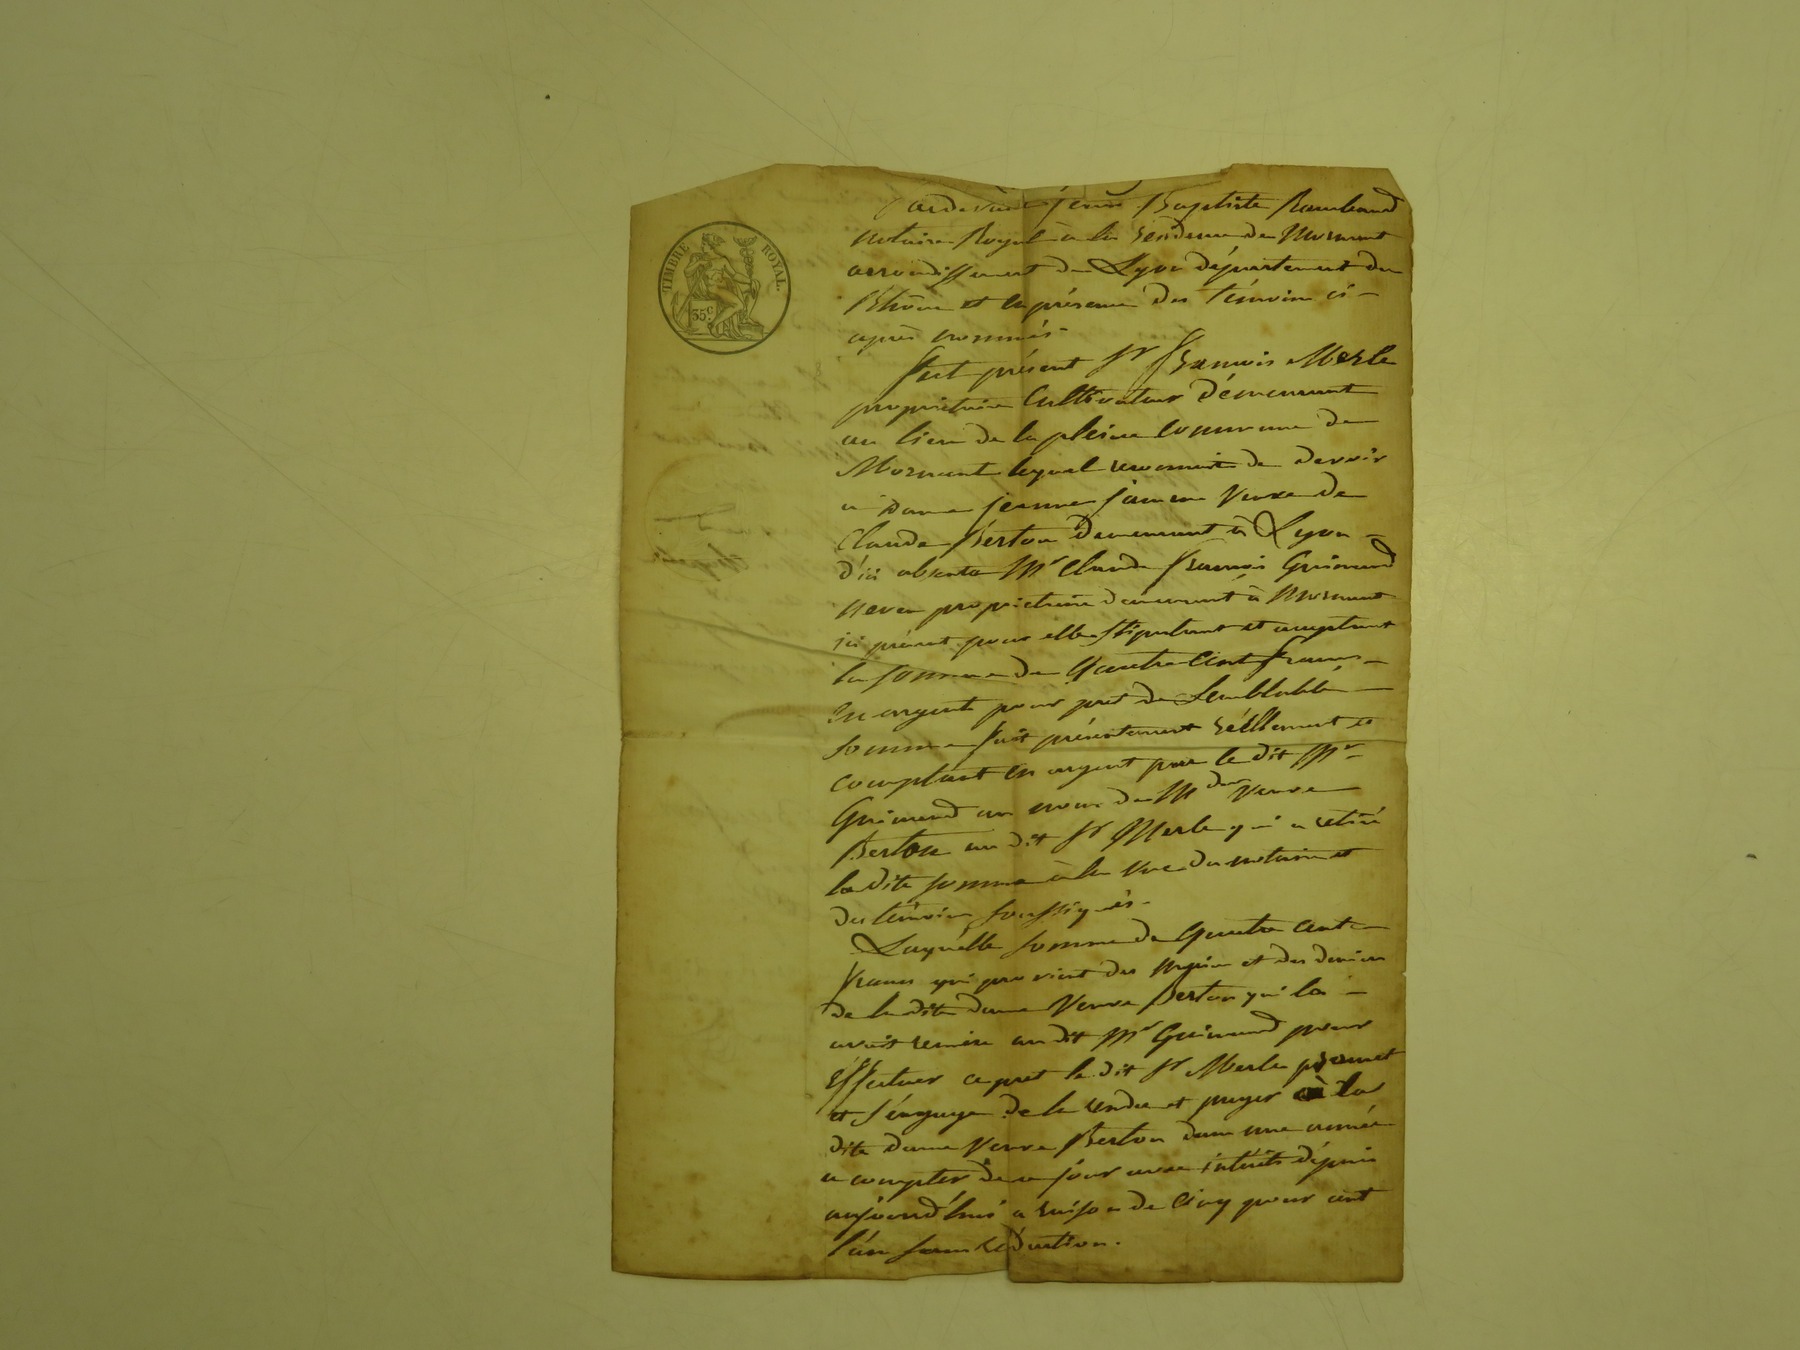 TIMBRE ROYAL.
35c.
Pardevant Jean Baptiste Rambaud
notaire Royal à la residence de Mornant
arrondissement de Lyon département du
Rhône et en présence des témoins ci-
après nommés
fut présent Sr François Merle
propriétaire Cultivateur Démeurant
au lieu de la pleine Commune de
Mornant lequel reconnait de devoir
à Dame jeanne Veuve de
Claude Berton Demeurant à Lyon -
d'ici absente Mr Claude François Guinand
neveu propriétaire demeurant à Mornant
ici présent pour elle stipulant et acceptant
la somme de Quatre Cent francs -
En argent pour pret de Semblable
Somme fait présentement réellement et
comptant en argent par le dit Mr
Guinand au nom de Mde Veuve
Berton au dit Sr Merle qui a retiré
la dite somme à la vue du notaire et
des témoins soussignés -
Laquelle somme de Quatre Cent -
francs qui provient des et des deniers
de la dite dame Veuve Berton qui la -
avait remise au dit Mr Guinand pour
Effectuer ce pret le dit Sr Merle promet
et s'éngage de la rendre et payer à la
dite dame Veuve Berton dans une année
a compter de ce jour avec intérêts dépuis
aujourd'hui a raison de Cinq pour cent
l'an sans réduction.